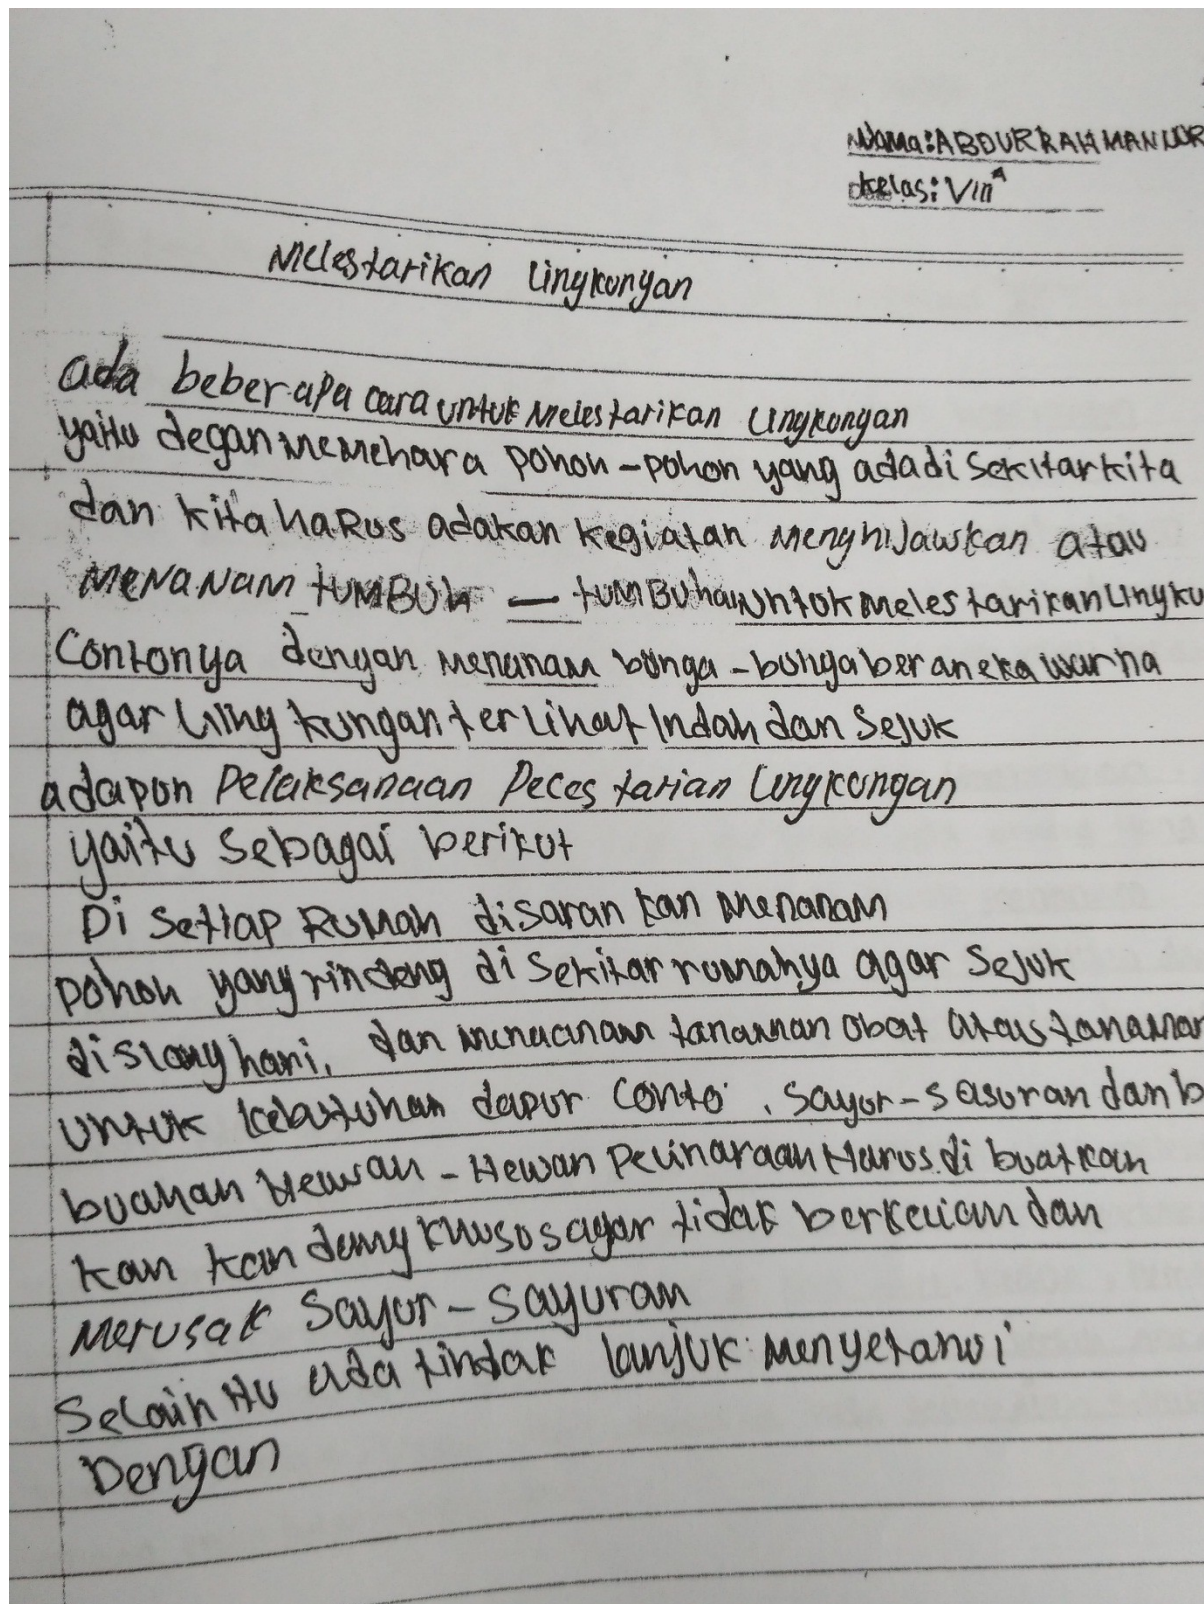 Nama: ABDURRAHMAN NR
Kelas: VIII A
Melestarikan Lingkungan
ada beberapa cara untuk Melestarikan Lingkungan
yaitu degan memehara pohon-pohon yang ada di sekitar kita
dan kita haRus adakan kegiatan menghijauskan atau
MENANAM tUMBUh — tUMBUhan untuk melestarikan Lingku
Contonya dengan menanam bunga-bunga beraneka warna
agar Lling kungan terlihat Indah dan Sejuk
adapun Pelaksanaan Pecestarian Lingkungan
yaitu sebagai berikut
Di Setiap RuMah disaran kan menanam
pohon yang rindeng di sekitar rumahya agar sejuk
disiang hari, dan menacnam tanamnan obat ataus tanaman
untuk kebutuhan dapur conto, sayur-sasuran dan b
buahan Hewan-Hewan Pelinaraan Harus di buatkan
kan kan dang khusos agar tidak berkeuian dan
Merusak Sayur-Sayuran
Selain itu ada tindak lanjuk menyetanui
Dengan